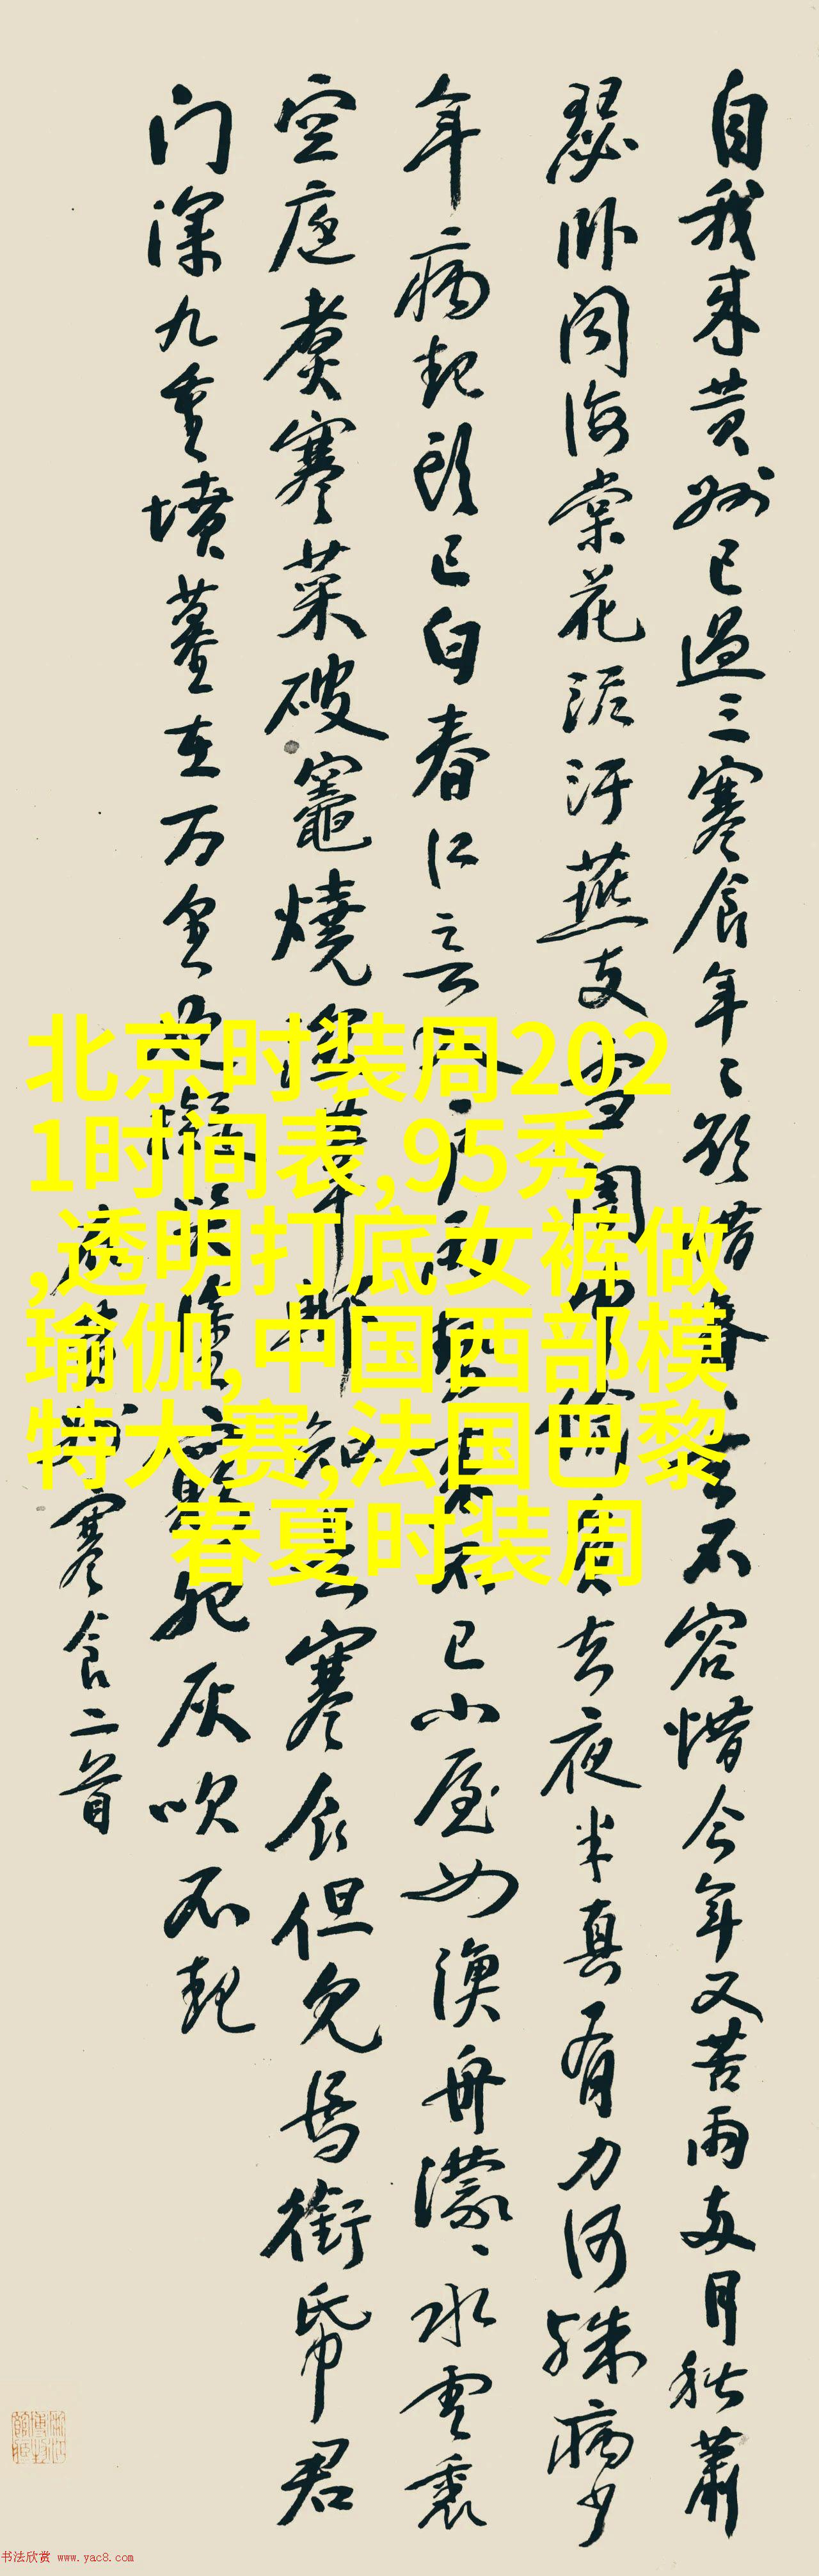 自我来黄州已過三寒食年〻欲惜春〻去不容惜今年又苦雨两月秋蕭
瑟卧闻海棠花泥污燕支雪闇中偷負去夜半真有力何殊病少
年病起頭已白春江入户雨勢来不已小屋如漁舟濛〻水雲裏
空庖煮寒菜破竈燒濕葦那知是寒食但見烏銜帋君
门深九重墳墓在万里也擬哭途窮死灰吹不起
寒食二首
北京时装周202
1时间表,95秀
,透明打底女裤做
瑜伽,中国西部模
特大赛,法国巴黎
春夏时装周
书法欣赏 www.yac8.com